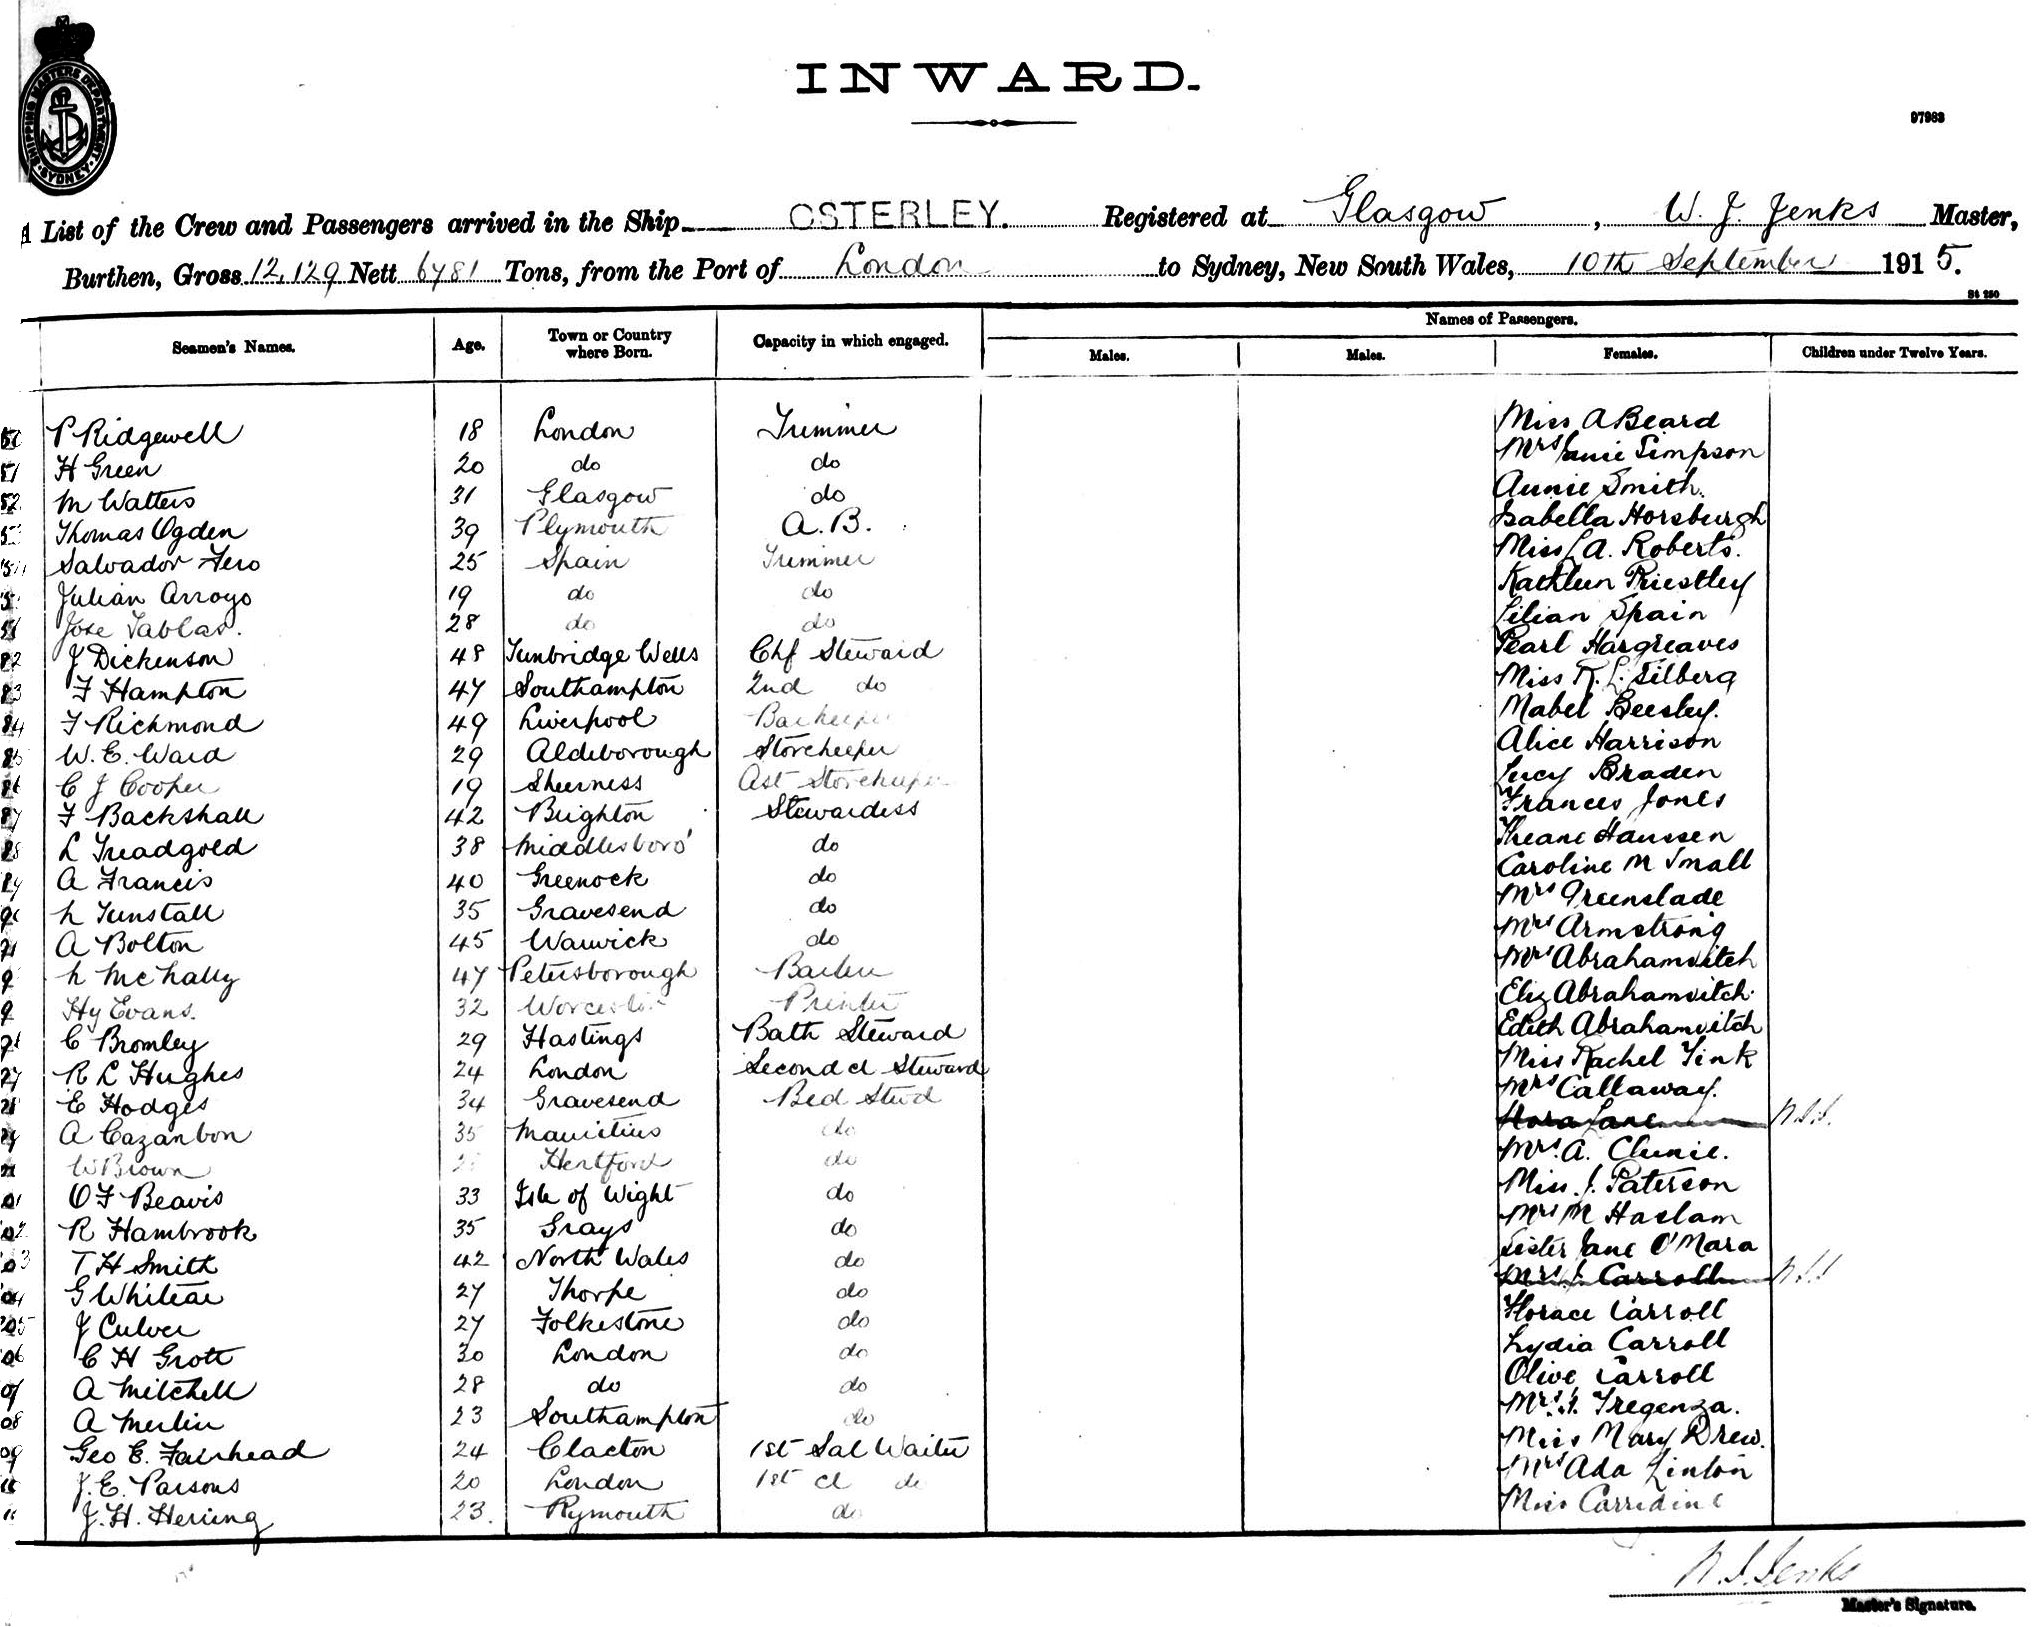 SHIPPING MASTERS DEPARTMENT · SYDNEY ·
INWARD.
97983
A List of the Crew and Passengers arrived in the Ship OSTERLEY. Registered at Glasgow, W. J. Jenks Master,
Burthen, Gross 12,129 Nett 6781 Tons, from the Port of London to Sydney, New South Wales, 10th September 1915.
St 250
Names of Passengers.
Seamen's Names. Age. Town or Country where Born. Capacity in which engaged. Males. Males. Females. Children under Twelve Years.
P Ridgewell 18 London Trimmer Miss A Beard
H Green 20 do do Mrs Janie Simpson
M Watters 31 Glasgow do Annie Smith.
Thomas Ogden 39 Plymouth A.B. Isabella Horsburgh
Salvador Fero 25 Spain Trimmer Miss L A. Roberts.
Julian Arroyo 19 do do Kathleen Priestley
Jose Tablas. 28 do do Lilian Spain
82 J Dickenson 48 Tunbridge Wells Chf Steward Pearl Hargreaves
83 F Hampton 47 Southampton 2nd do Miss R. L. Silberg
84 F Richmond 49 Liverpool Barkeeper Mabel Beesley.
85 W. E. Ward 29 Aldeborough Storekeeper Alice Harrison
86 C J Cooper 19 Sheerness Ast Storekeeper Lucy Braden
87 F Backshall 42 Brighton Stewardess Frances Jones
88 L Treadgold 38 Middlesboro' do Theane Hanssen
89 A Francis 40 Greenock do Caroline M Small
90 N Tunstall 35 Gravesend do Mrs Greenslade
91 A Bolton 45 Warwick do Mrs Armstrong
N McNally 47 Petersborough Barber Mrs Abrahamvitch
Hy Evans. 32 Worcester Printer Eliz Abrahamvitch
C Bromley 29 Hastings Bath Steward Edith Abrahamvitch
97 R L Hughes 24 London Second cl Steward Miss Rachel Fink
98 E Hodges 34 Gravesend Bed Stwd Mrs Callaway.
99 A Cazanbon 35 Mauritius do Nora Lane
W Brown Hertford do Mrs. A. Clunie.
01 O F Beavis 33 Isle of Wight do Miss. J. Paterson
02 R Hambrook 35 Grays do Mrs M Haslam
03 T H Smith 42 North Wales do Sister Jane O'Mara
04 G Whitear 27 Thorpe do Mrs. J. Carroll
05 J Culver 27 Folkestone do Horace Carroll
06 C H Grott 30 London do Lydia Carroll
07 A Mitchell 28 do do Olive Carroll
08 A Merlin 23 Southampton do Mrs. Tregenza.
09 Geo E. Fairhead 24 Clacton 1st Sal Waiter Miss Mary Drew.
J. E. Parsons 20 London 1st cl do Mrs Ada Linton
J. H. Hering 23. Plymouth do Miss Carridine
W. J. Jenks
Master's Signature.